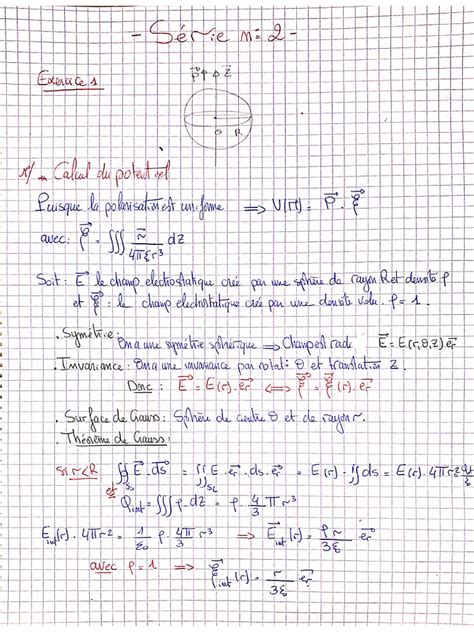 - Série n: 2 -
Exercice 1
P⃗ ↑ Δ z⃗
O R
1/ - Calcul du potentiel
Puisque la polarisation est uniforme ⟹ V(M) = P⃗ . ξ⃗
avec: ξ⃗ = ∭ r⃗ / 4πξr³ dZ
Soit: E⃗ le champ electrostatique crée par une sphère de rayon R et densité ρ
et ξ⃗ : le champ electrostatique crée par une densité volu. ρ = 1.
. Symétrie: On a une symétrie sphérique ⟹ Champ est rad E⃗ = E(r,θ,Z) er⃗
. Invariance: On a une invariance par rotat: θ et translation Z.
Dnc: E⃗ = E(r). er⃗ ⟺ ξ⃗ = ξ(r). er⃗
. Surface de Gauss: Sphère de centre O et de rayon r.
. Théorème de Gauss:
Si r<R ∯ E⃗.ds⃗ = ∬ E er⃗ . ds. er⃗ = E(r) . ∬ ds = E(r). 4πr²
et Qint = ∭ ρ. dZ = ρ. 4/3 π r³
Eint(r). 4πr² = 1/ε0 ρ. 4π/3 r³ ⟹ Eint⃗(r) = ρr/3ξ er⃗
avec ρ = 1 ⟹ ξint⃗(r) = r/3ξ er⃗